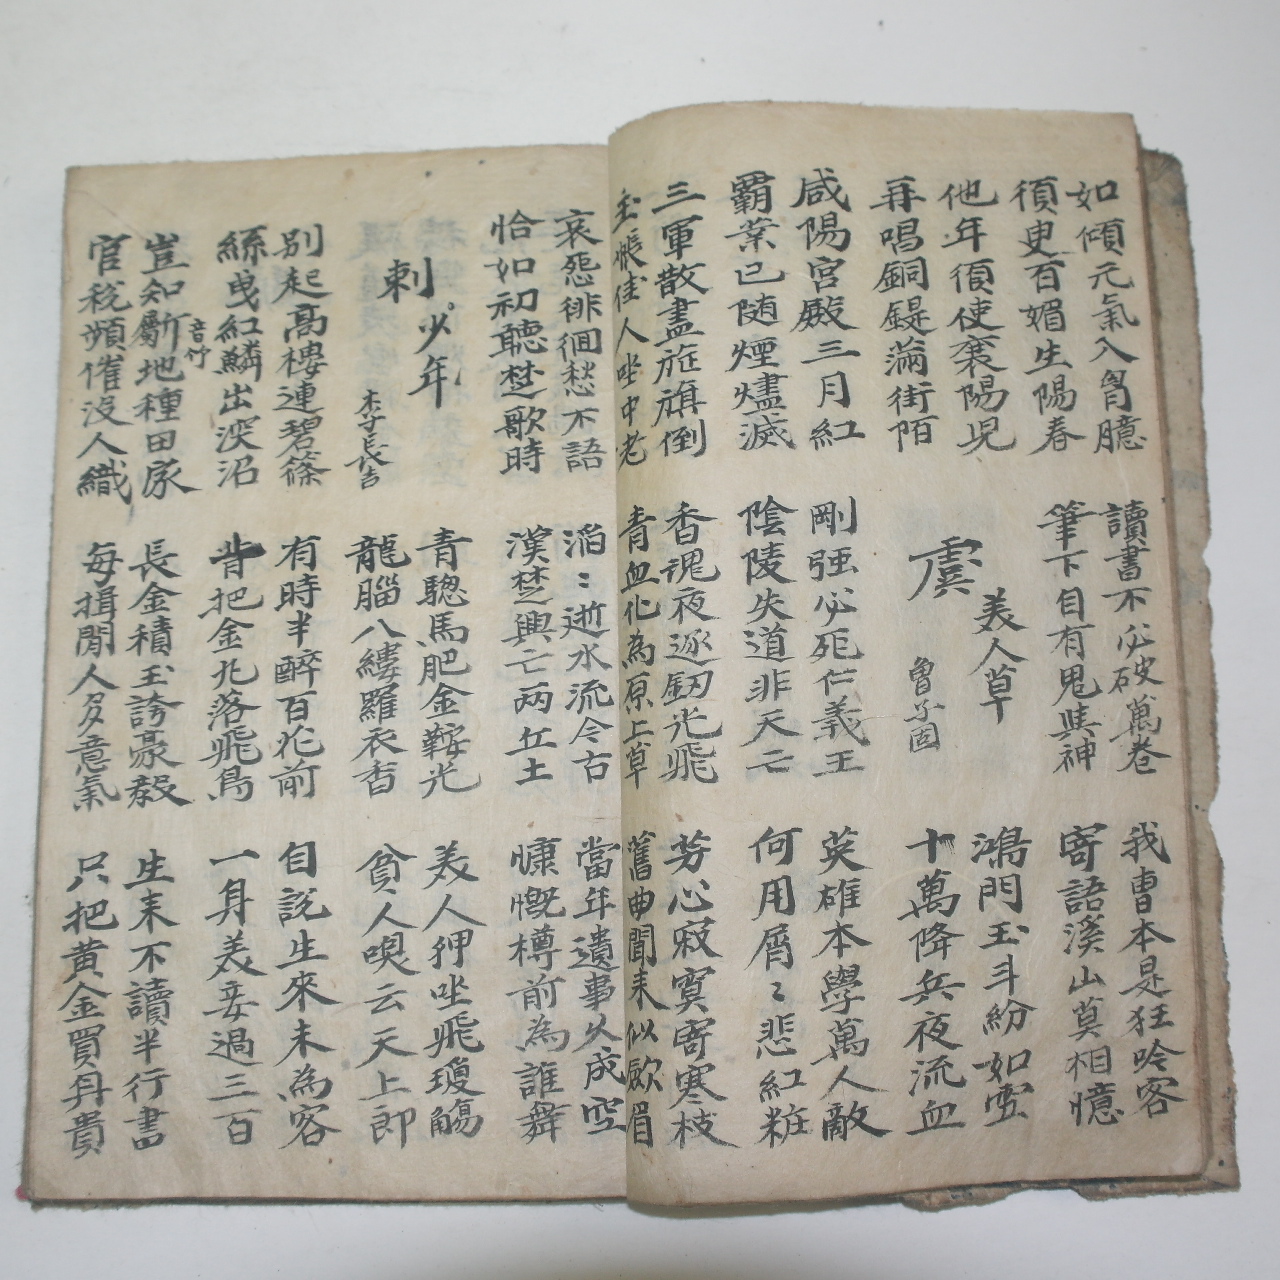 如傾元氣入胷臆
須臾百媚生陽春
讀書不必破萬卷
筆下自有鬼與神
我曹本是狂吟客
寄語溪山莫相憶
他年須使襄陽兒
再唱銅鍉滿街陌
虞美人草
魯子固
鴻門玉斗紛如雪
十萬降兵夜流血
咸陽宮殿三月紅
霸業已随煙燼滅
剛強必死仁義王
陰陵失道非天亡
英雄本學萬人敵
何用屑〻悲紅粧
三軍散盡旌旗倒
玉帳佳人坐中老
香魂夜逐釼光飛
青血化為原上草
芳心寂寞寄寒枝
舊曲聞来似歛眉
哀怨徘徊愁不語
恰如初聽楚歌時
滔〻逝水流今古
漢楚興亡兩丘土
當年遺事久成空
慷慨樽前為誰舞
刺少年
李長吉
青驄馬肥金鞍光
龍腦入縷羅衣香
美人狎坐飛瓊觴
貧人喚云天上郎
別起高樓連碧篠
絲曳紅鱗出深沼
有時半醉百花前
背把金丸落飛鳥
自說生來未為客
一身美妾過三百
豈知斸地種田家
音竹
官稅頻催没人織
長金積玉誇豪毅
每揖閒人多意氣
生来不讀半行書
只把黄金買身貴